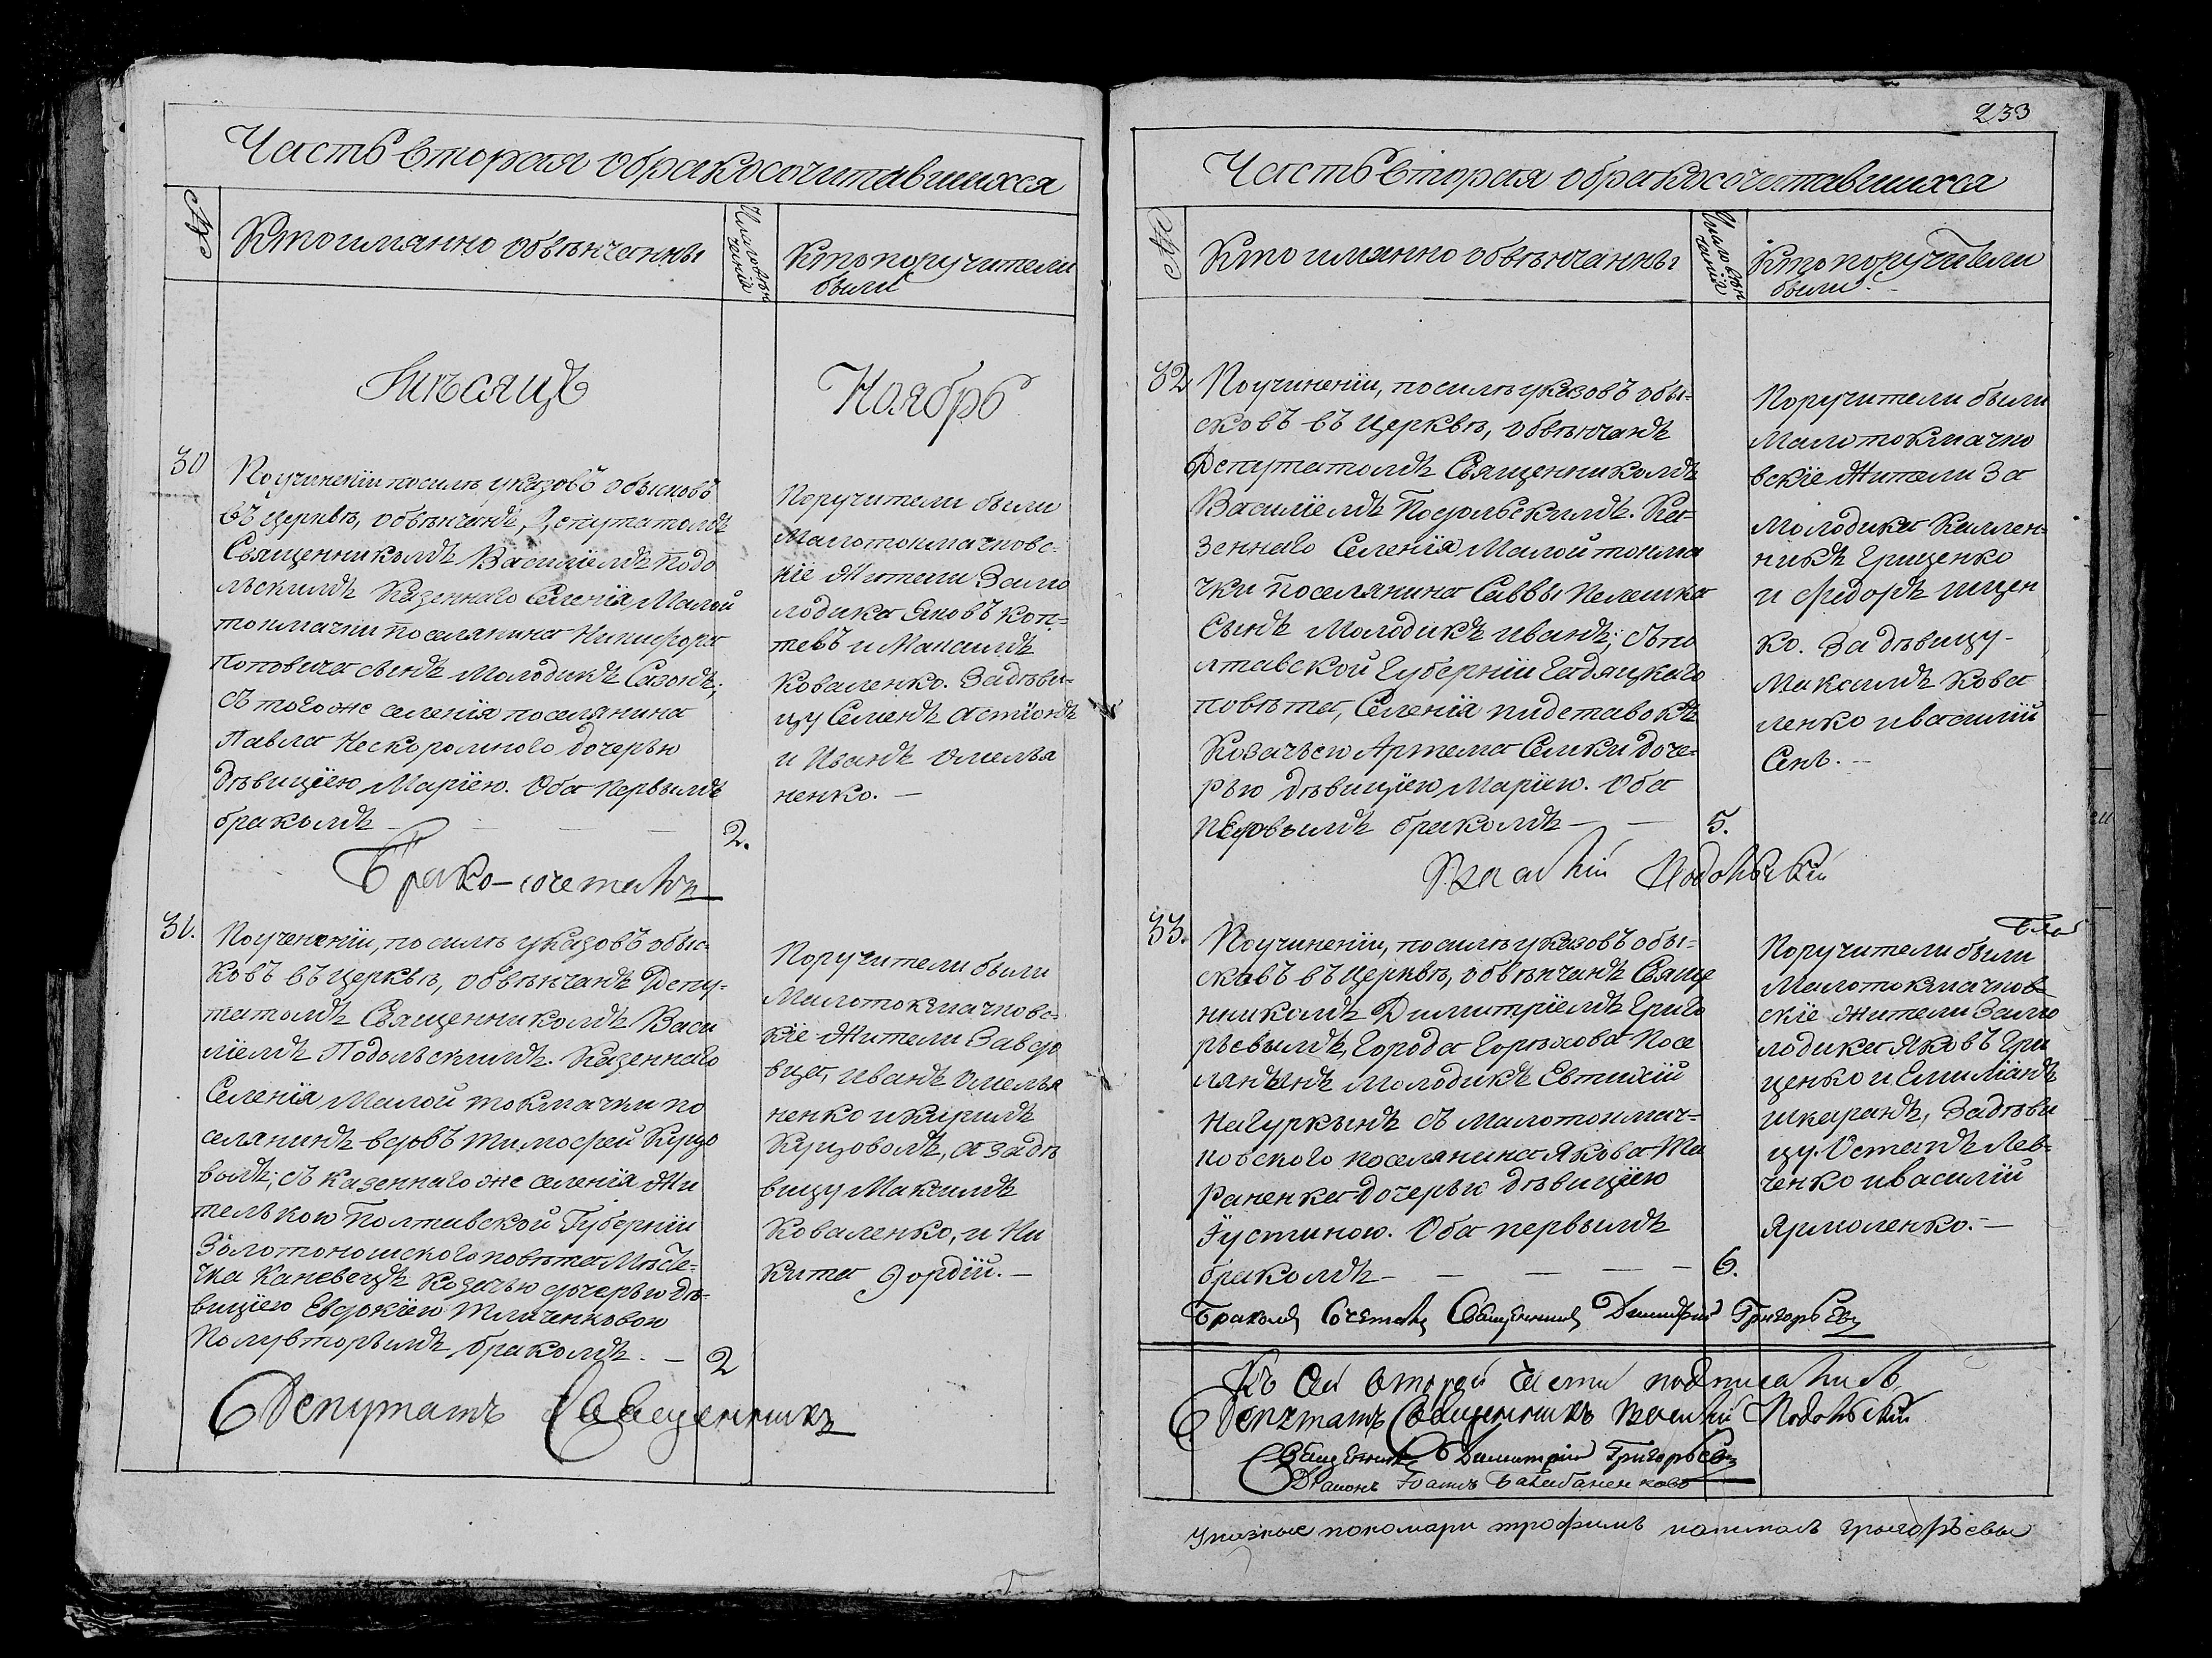 Часть вторая о бракосочитавшихся
№
Кто имянно обвѣнчанны
Число вѣн
чанія
Кто поручители
были
Мѣсяцъ
Ноябрь
30
По учиненіи по силѣ указовъ обысковъ
въ церквѣ, обвѣнчанъ, Депутатомъ
Священникомъ Василіемъ Подо
льскимъ Казеннаго Селенія Малой
токмачки поселянина Никифора
Поповича сынъ Молодикъ Сазонъ;
съ того же селенія поселянина
Павла Нескоромного дочерью
дѣвицією Марією. Оба первымъ
бракомъ
2.
Поручители были
Малотокмачковс-
кіе Жители За мо
лодика Яковъ Коп-
тевъ и Максимъ
Коваленко. За дѣви-
цу Семенъ
и Иванъ Омелья
ненко. —
Брако-сочеталъ
31.
По учененіи, по силѣ указовъ обыс-
ковъ въ церквѣ, обвѣнчанъ Депу-
татомъ Священникомъ Васи
ліемъ Подольскимъ. Казеннаго
Селенія Малой токмачки по
селянинъ вдовъ Тимофей Курдо
вымъ; съ казеннаго же селенія Жи
телькою Полтавской Губерніи
Золотоношского повѣта Мѣсте-
чка Каневецъ козачью дочерью дѣ-
вицією Евдокією Ткаченковою
Полувторымъ бракомъ. —
2
Поручители были
Малотокмачковс-
кіе Жители За вдо
вца, Иванъ Омелья
ненко и Кирилъ
а за дѣ
вицу Максимъ
Коваленко, и Ни
кита
Депутатъ Священникъ
233
Часть вторая о бракосочитавшихся
№
Кто имянно обвѣнчанны
Число вѣн
чанія
Кто поручители
были. -
32
По учиненіи, по силѣ указовъ обы-
сковъ въ церквѣ, обвѣнчанъ
Депутатомъ Священникомъ
Василіемъ Подольскимъ. Ка-
зеннаго Селенія Малой токма
чки поселянина Саввы Пелешка
Сынъ Молодикъ Иванъ; съ по
лтавской Губерніи Гадяцкаго
повѣта, Селенія пидставокъ
Козачьею Артема Сенки доче-
рью дѣвицією Марією. Оба
первымъ бракомъ —
5.
Поручители были
Малотокмачко
вскіе Жители За
молодика Каллен-
никъ Грищенко
и Федоръ Ищен
ко. За дѣвицу
Максимъ Кова
ленко и Василій
Сень. --
Василій Подольскій
33.
По учиненіи, по силѣ указовъ обы-
сковъ въ церквѣ, обвѣнчанъ Свяще
нникомъ Димитріемъ Григо
рьевымъ, Города Горѣхова Посе
лянѣнъ Молодикъ Евтихій
съ Малотокмач-
ковского поселянина Якова Та
раненка дочерью дѣвицією
Іустиною. Оба первымъ
бракомъ —
6.
Поручители были
Малотокмачков
скіе жители За мо
лодика Яковъ Гри
ценко и Емиліанъ
Шкаранъ, За дѣви
цу Остапъ Лев-
ченко и Василій
Ярмоленко. —
Бракомъ Сочеталъ Священникъ Димитрій Григорьевъ
Къ сей второй Части подписались
Депутатъ Священникъ Василій Подольскій
Священникъ Димитрій Григорьевъ
Діаконъ Іоаннъ
Указные пономари трофимъ григорьевы